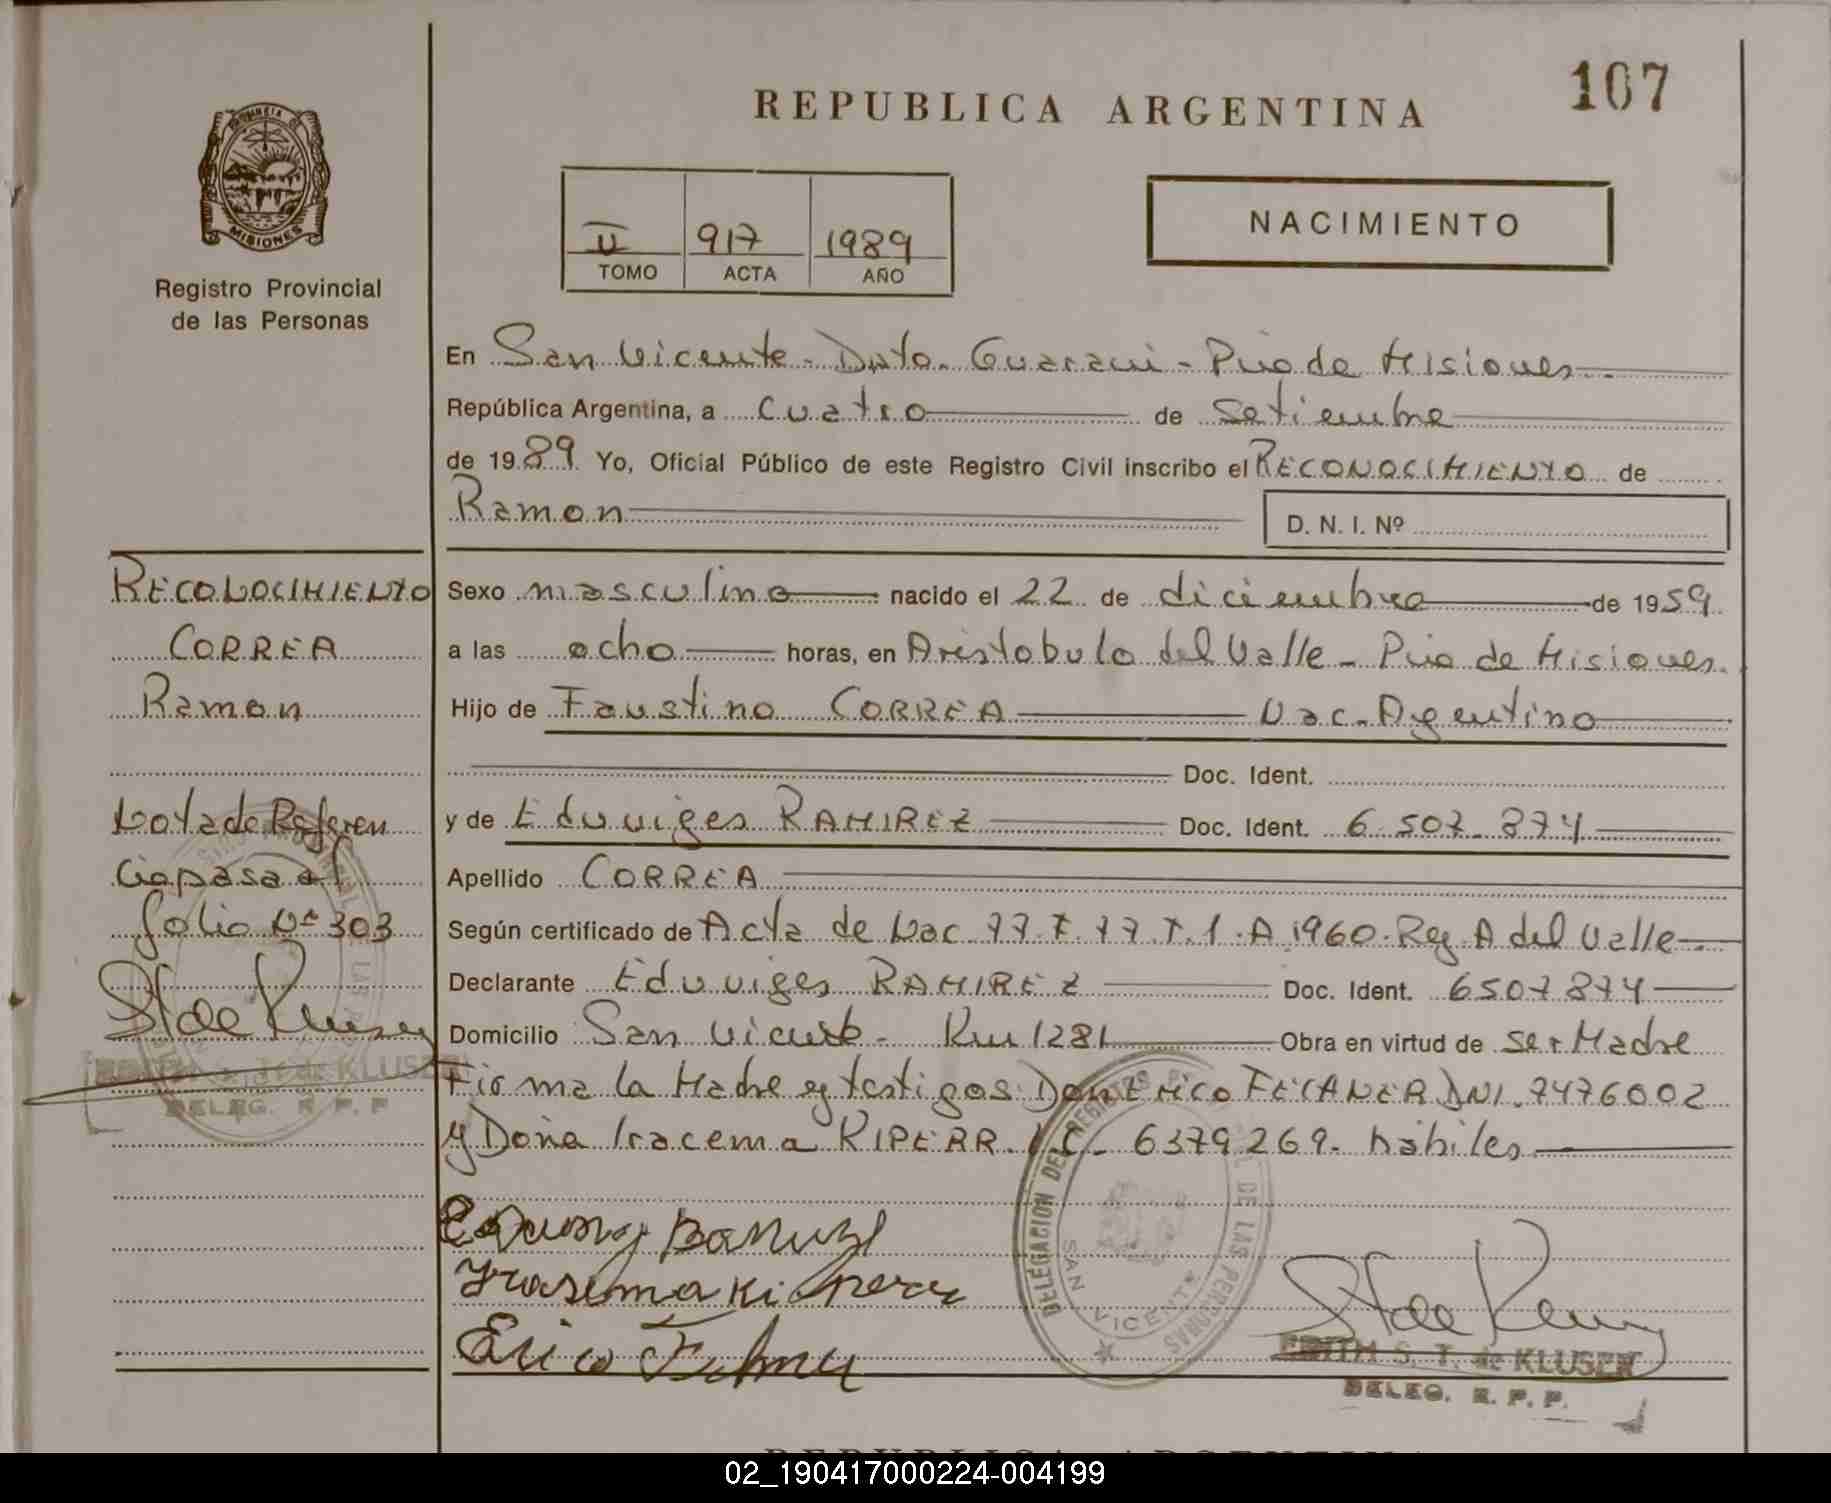 107
REPUBLICA ARGENTINA
PROVINCIA DE
MISIONES
Registro Provincial
de las Personas
II 917 1989
TOMO ACTA AÑO
NACIMIENTO
En San Vicente - Dpto. Guarani - Pcia de Misiones
República Argentina, a cuatro de Setiembre
de 1989. Yo, Oficial Público de este Registro Civil inscribo el RECONOCIMIENTO de
Ramon
D. N. I. Nº
Sexo masculino nacido el 22 de diciembre de 1959
a las ocho horas, en Aristobulo del Valle - Pcia de Misiones.
Hijo de Faustino CORREA Nac. Argentino
Doc. Ident.
y de Eduviges RAMIREZ Doc. Ident. 6.507.874
Apellido CORREA
Según certificado de Acta de Nac 77.F.77.T.1.A 1960. Reg. A del Valle
Declarante Eduviges RAMIREZ Doc. Ident. 6507874
Domicilio San Vicente - Km 1281 Obra en virtud de ser Madre
Firma la Madre y testigos: Don Erico DNI. 7476002
y Doña Iracema KIPERR. L.C. 6379269. hábiles
RECONOCIMIENTO
CORREA
Ramon
Nota de Referen
cia pasa al
folio Nº 303
EDITH S. T. de KLUSER
DELEG. R. P. P.
DELEGACION DEL REGISTRO PROVINCIAL DE LAS PERSONAS
SAN VICENTE
Erico
EDITH S. T. de KLUSER
DELEG. R. P. P.
REPUBLICA ARGENTINA
02_190417000224-004199